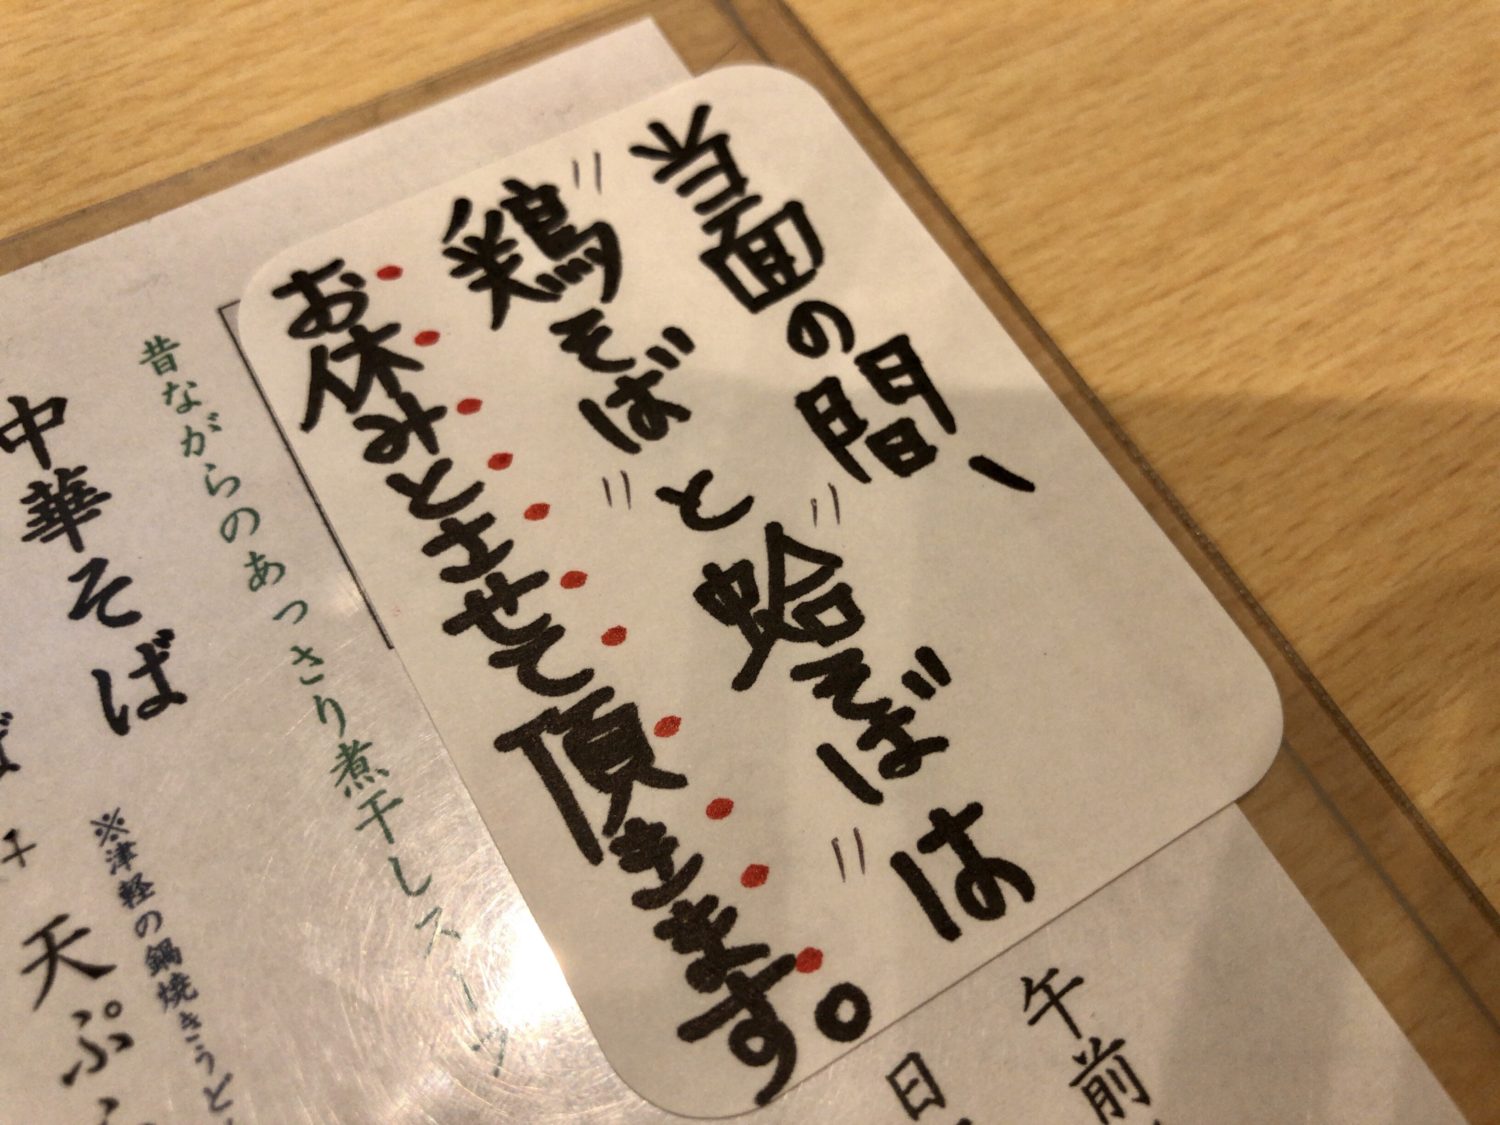 当面の間、
〝鶏そば〟と〝蛤そば〟は
お休みとさせて頂きます。
午前
日
昔ながらのあっさり煮干しスープ
中華そば
※津軽の鍋焼きうど
天ぷ